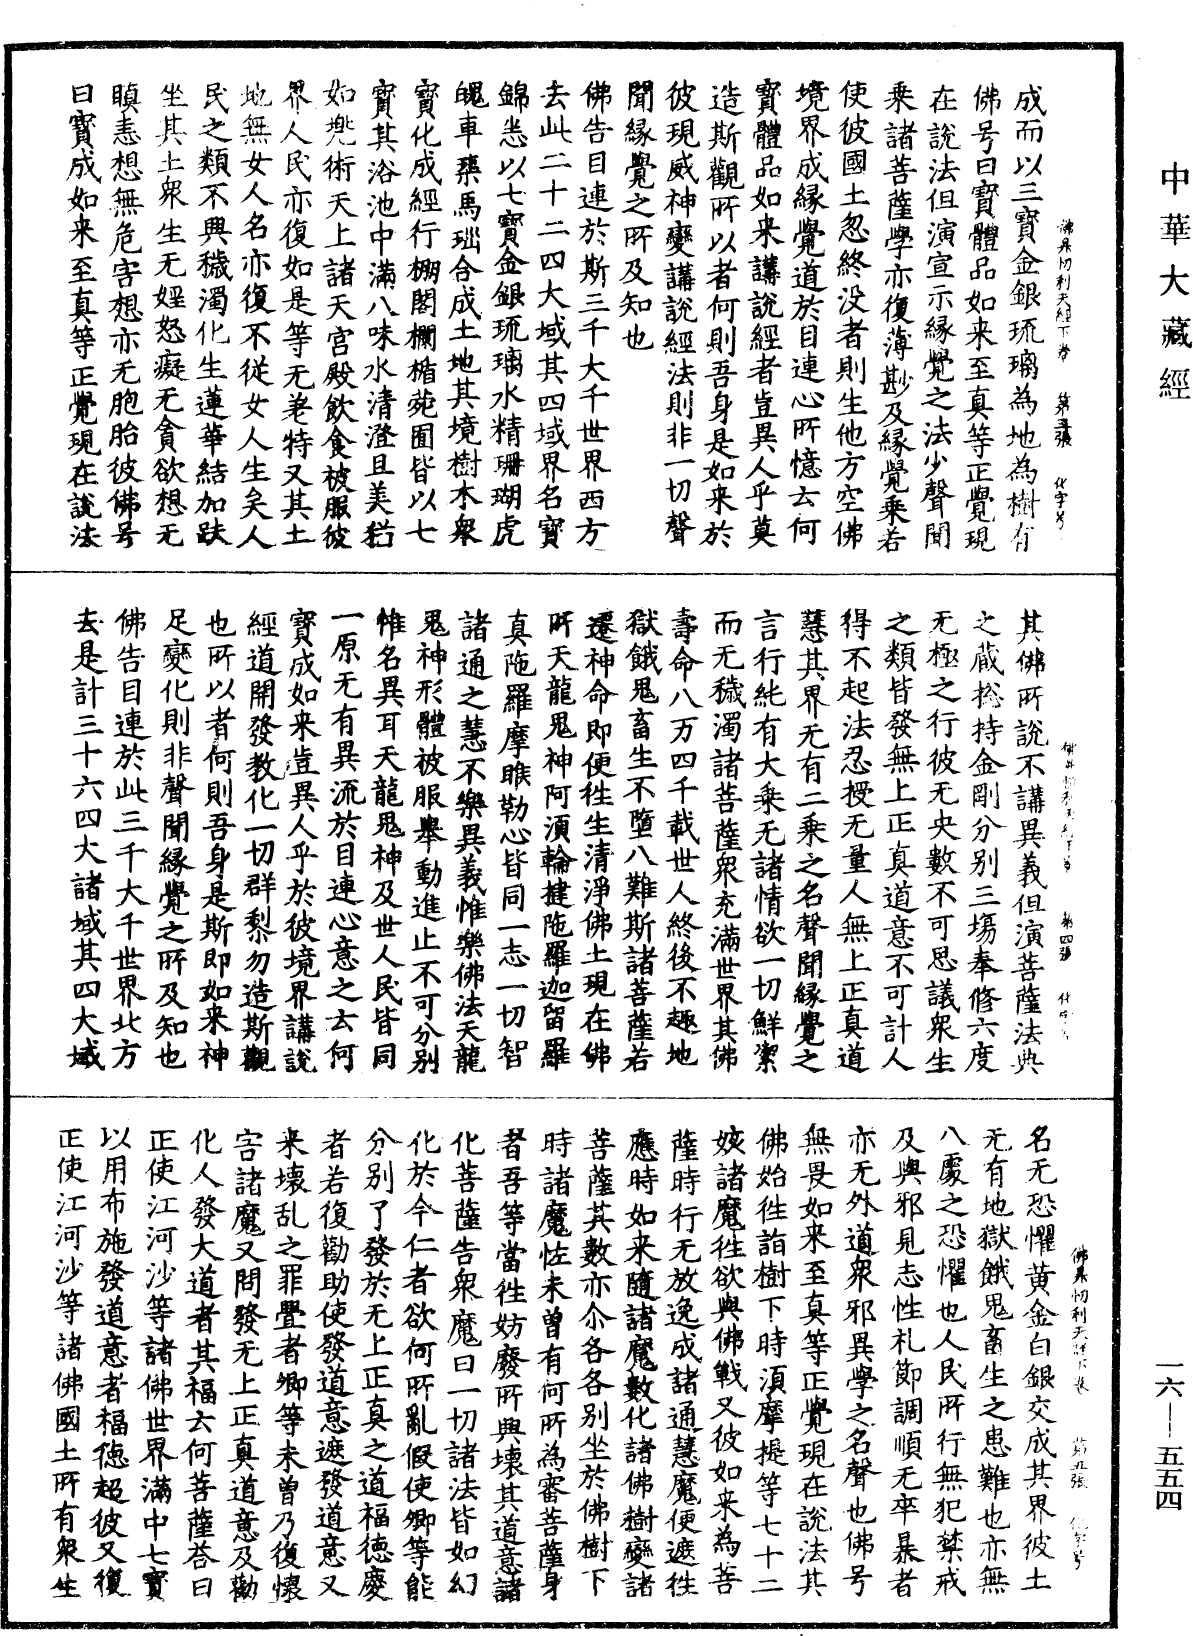 中華大藏經
一六—五五四
佛昇忉利天經下卷 第三張 化字号
成而以三寶金銀琉璃為地為樹有
佛号曰寶體品如来至真等正覺現
在說法但演宣示緣覺之法少聲聞
乘諸菩薩學亦復薄尠及緣覺乘若
使彼國土忽終没者則生他方空佛
境界成緣覺道於目連心所憶云何
寶體品如来講說經者豈異人乎莫
造斯觀所以者何則吾身是如来於
彼現威神變講說經法則非一切聲
聞緣覺之所及知也
佛告目連於斯三千大千世界西方
去此二十二四大域其四域界名寶
錦悉以七寶金銀琉璃水精珊瑚虎
魄車𤦲馬瑙合成土地其境樹木衆
寶化成經行棚閣欄楯苑囿皆以七
寶其浴池中滿八味水清澄且美猶
如兜術天上諸天宮殿飲食被服彼
界人民亦復如是等无差特又其土
地無女人名亦復不從女人生矣人
民之類不興穢濁化生蓮華結加趺
坐其土衆生无婬怒癡无貪欲想无
瞋恚想無危害想亦无胞胎彼佛号
曰寶成如来至真等正覺現在說法
第四張
其佛所說不講異義但演菩薩法典
之藏捴持金剛分别三塲奉修六度
无極之行彼无央數不可思議衆生
之類皆發無上正真道意不可計人
得不起法忍授无量人無上正真道
慧其界无有二乘之名聲聞緣覺之
言行純有大乘无諸情欲一切鮮潔
而无穢濁諸菩薩衆充滿世界其佛
壽命八万四千載世人終後不趣地
獄餓鬼畜生不墮八難斯諸菩薩若
遷神命即便徃生清淨佛土現在佛
所天龍鬼神阿須輪揵陁羅迦留羅
真陁羅摩睺勒心皆同一志一切智
諸通之慧不樂異義惟樂佛法天龍
鬼神形體被服舉動進止不可分别
惟名異耳天龍鬼神及世人民皆同
一原无有異流於目連心意之云何
寶成如来豈異人乎於彼境界講說
經道開發教化一切群梨勿造斯觀
也所以者何則吾身是斯即如来神
足變化則非聲聞緣覺之所及知也
佛告目連於此三千大千世界北方
去是計三十六四大諸域其四大域
佛昇忉利天經下卷 第五張 化字号
名无恐懼黃金白銀交成其界彼土
无有地獄餓鬼畜生之患難也亦無
八處之恐懼也人民所行無犯禁戒
及與邪見志性礼節調順无卒暴者
亦无外道衆邪異學之名聲也佛号
無畏如来至真等正覺現在說法其
佛始徃詣樹下時須摩提等七十二
姟諸魔徃欲與佛戰又彼如来為菩
薩時行无放逸成諸通慧魔便遮徃
應時如来隨諸魔數化諸佛樹變諸
菩薩其數亦尒各各别坐於佛樹下
時諸魔恠未曾有何所為審菩薩身
者吾等當徃妨廢所興壞其道意諸
化菩薩告衆魔曰一切諸法皆如幻
化於今仁者欲何所亂假使卿等能
分别了發於无上正真之道福德慶
者若復勸助使發道意遮發道意又
来壞乱之罪舋者卿等未曾乃復懷
害諸魔又問發无上正真道意及勸
化人發大道者其福云何菩薩荅曰
正使江河沙等諸佛世界滿中七寶
以用布施發道意者福德超彼又復
正使江河沙等諸佛國土所有衆生